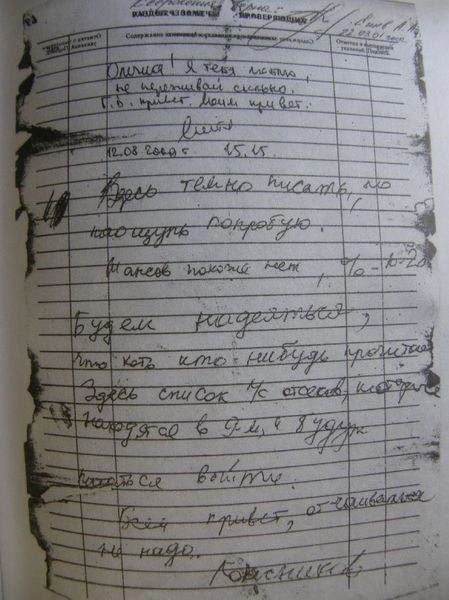 ПРОВЕРЯЮЩИХ
Олечка! Я тебя люблю,
не переживай сильно.
Г.В. привет. Моим привет.
12.08 2000 г 15.15.
Здесь темно писать, но
наощупь попробую.
Шансов похоже нет, % - 10-20
Будем надеяться,
что хоть кто-нибудь прочитает
Здесь список л/с отсеков, которые
находятся в 9-м, и будут
пытаться выйти.
Всем привет, отчаиваться
не надо.
Колесников